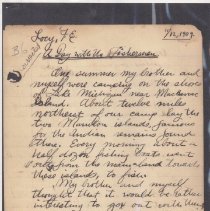 Levy, F.E.
1/12, 1909.
A Day with the Fishermen
One summer my brother and
myself were camping on the shores
of Lake Michigan near Mackinac
Island. About twelve miles
northeast of our camp lay the
two Manitou islands, famous
for the Indian remains found
there. Every morning about a
half dozen fishing boats went
out from the main land toward
these islands, to fish.
My brother and myself
thought that it would be rather
interesting to go out with them